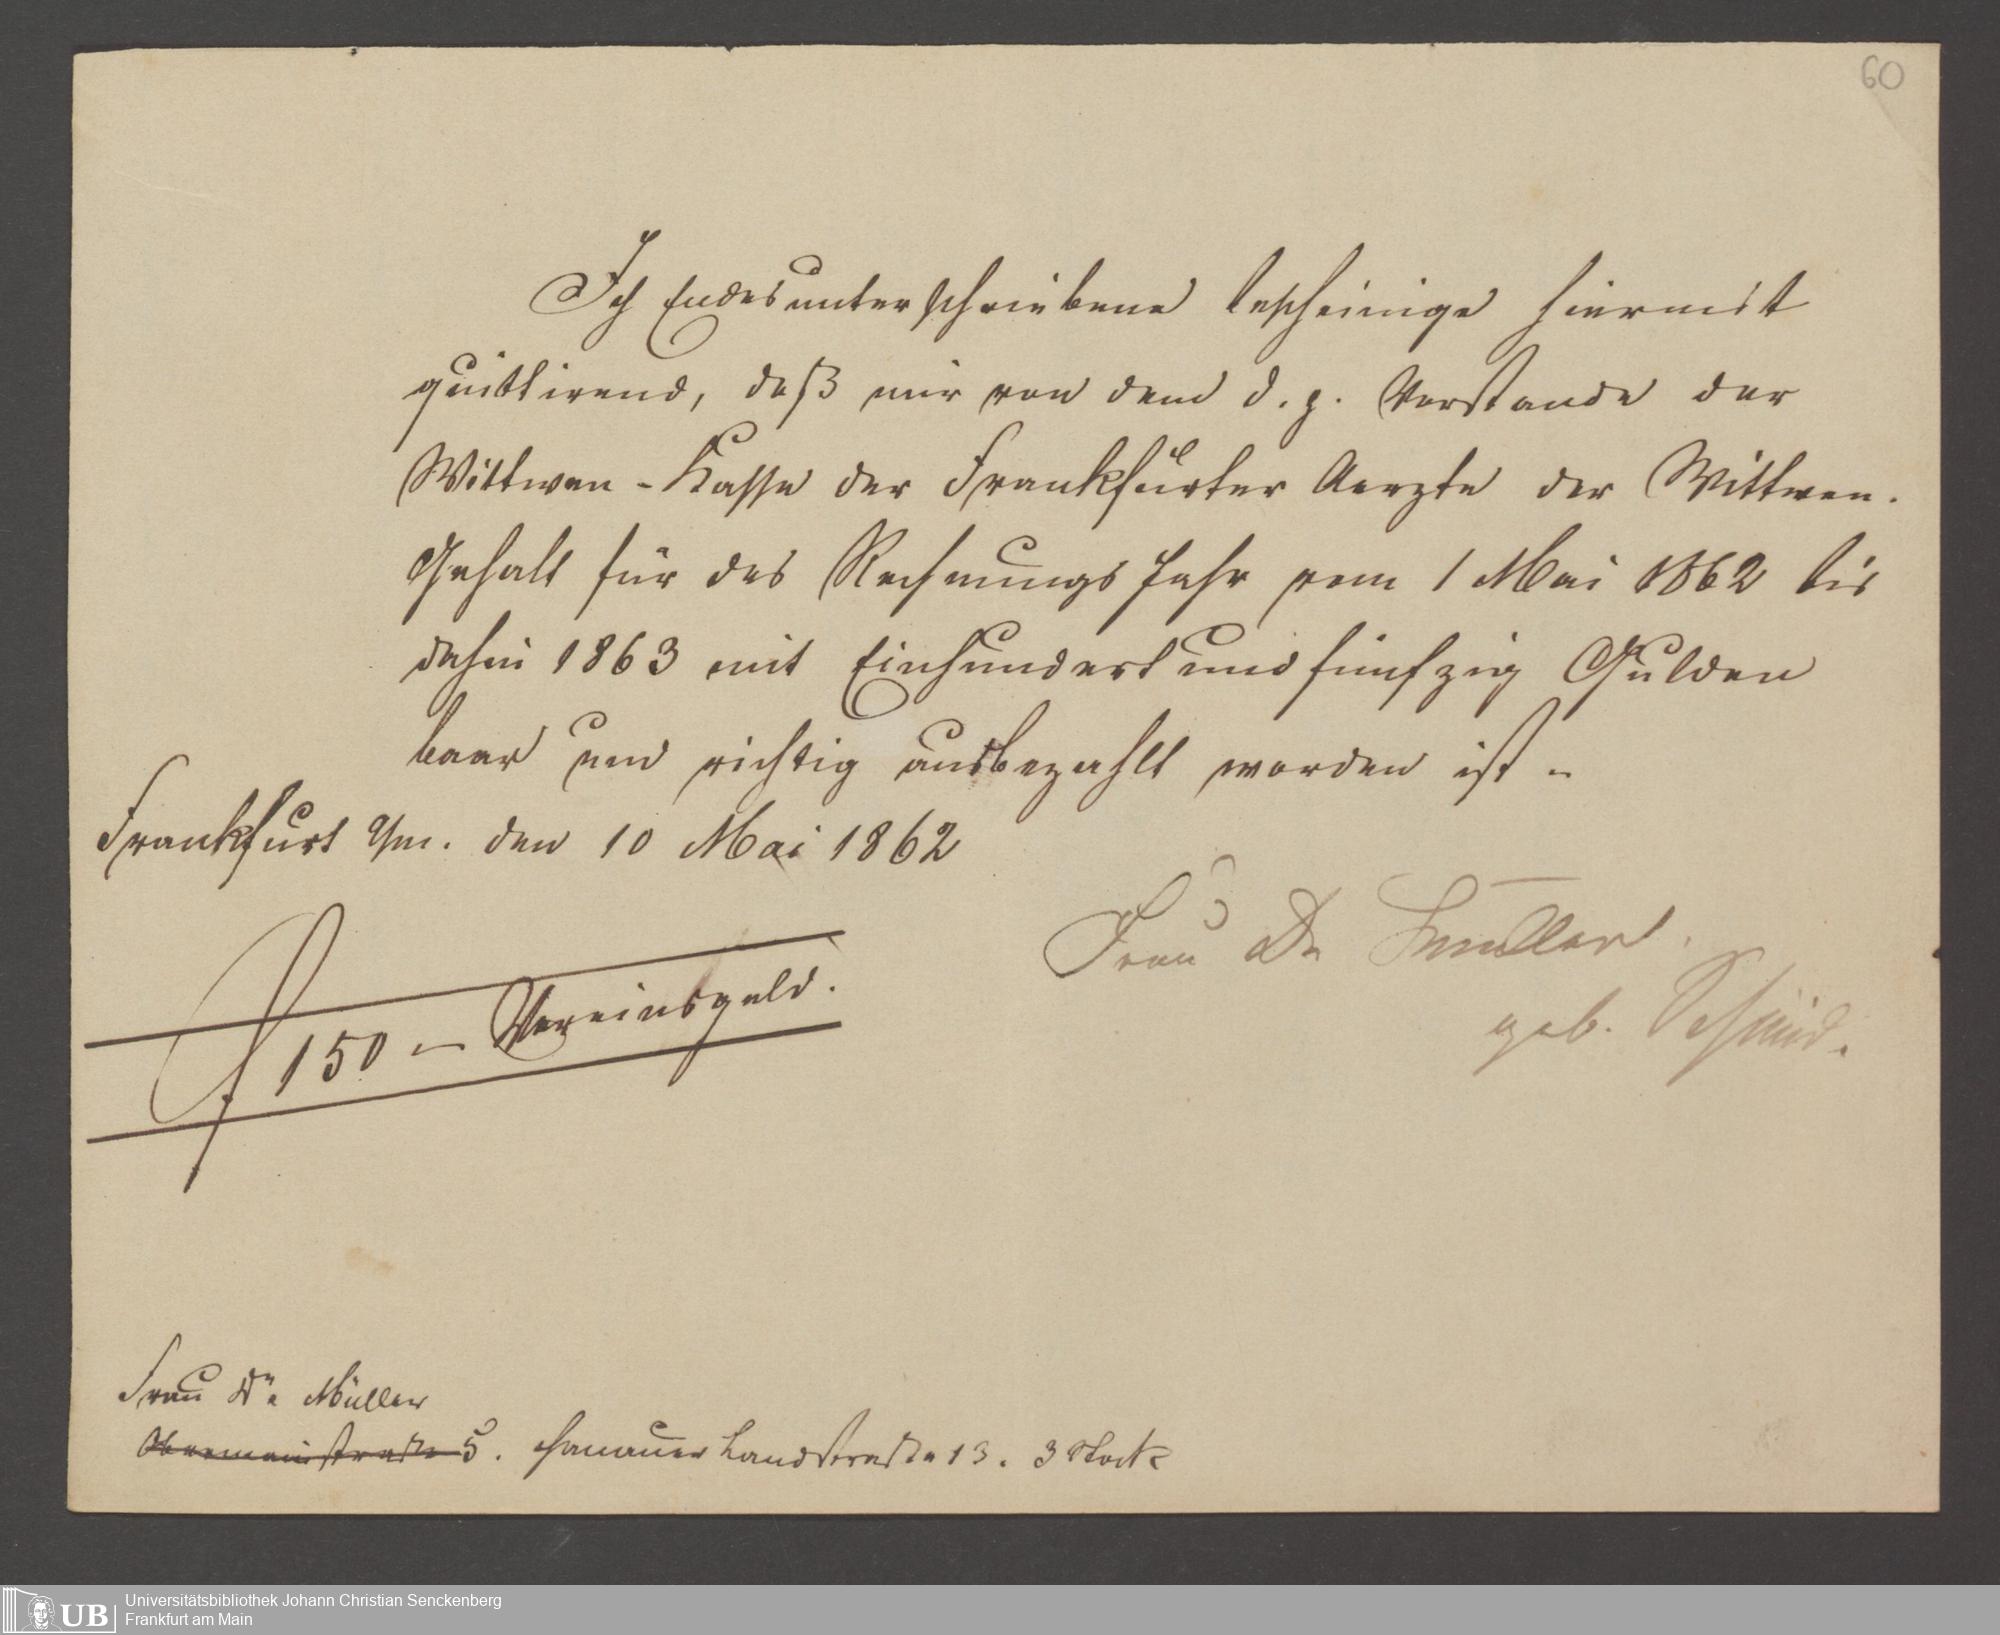 60
Ich Endesunterschriebene bescheinige hiermit
quittirend, daß mir von dem d. z. Vorstande der
Wittwen-Kasse der Frankfurter Aerzte der Wittwen-
Gehalt für das Rechnungs Jahr vom 1 Mai 1862 bis
dahin 1863 mit Einhundert und fünfzig Gulden
baar und richtig ausbezahlt worden ist.
Frankfurt a/m. den 10 Mai 1862
f 150 – Vereinsgeld.
Frau Dr Müller
geb. Schmid.
Frau Dr Müller
Obermainstraße 5. Hanauer Landstraße 13. 3 Stock
Universitätsbibliothek Johann Christian Senckenberg
UB Frankfurt am Main